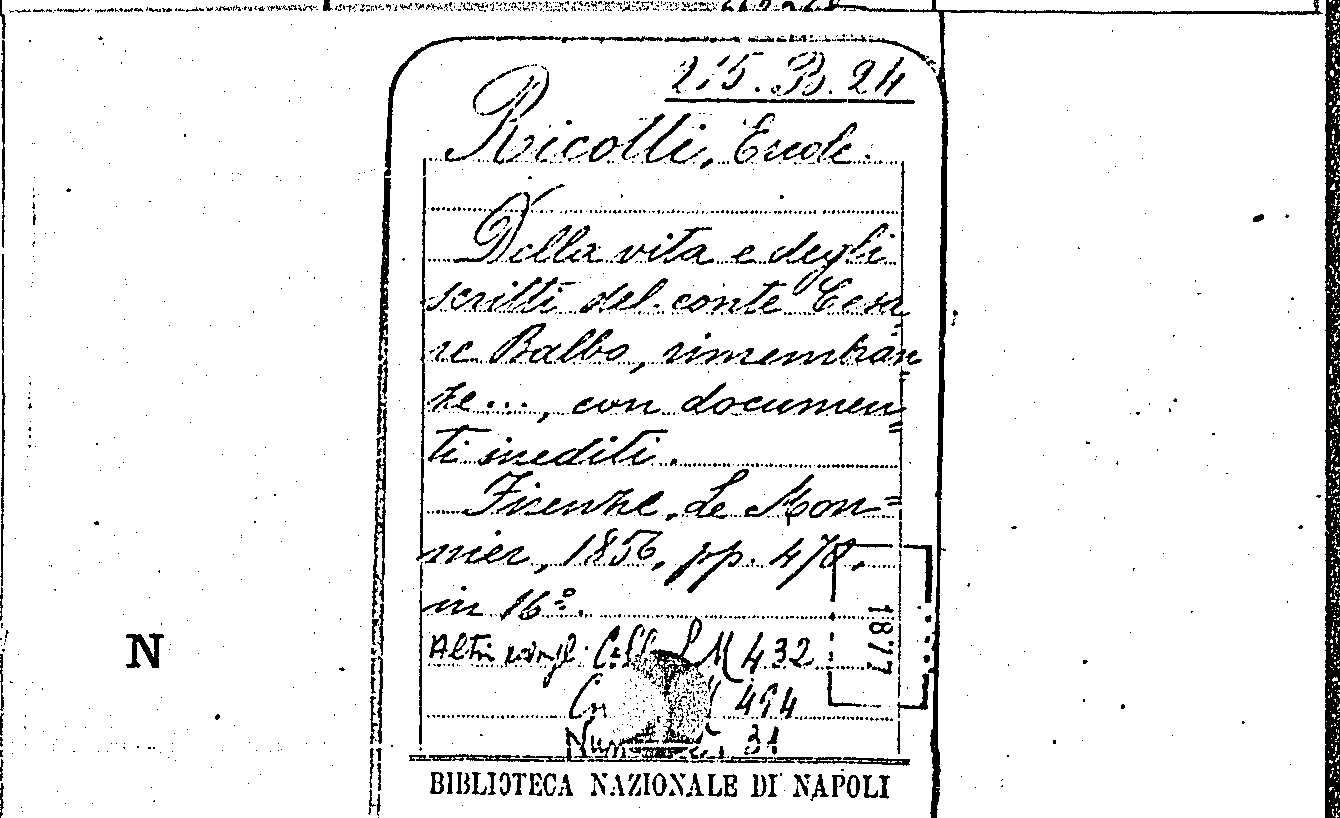 215.B.24
Ricotti, Ercole.
Della vita e degli
scritti del conte Cesa
re Balbo, rimembran
ze..., con documen
ti inediti.
Firenze, Le Mon=
nier, 1856, pp. 478,
in 16º.
Altri LM 432
494
31
1877
N
BIBLIOTECA NAZIONALE DI NAPOLI